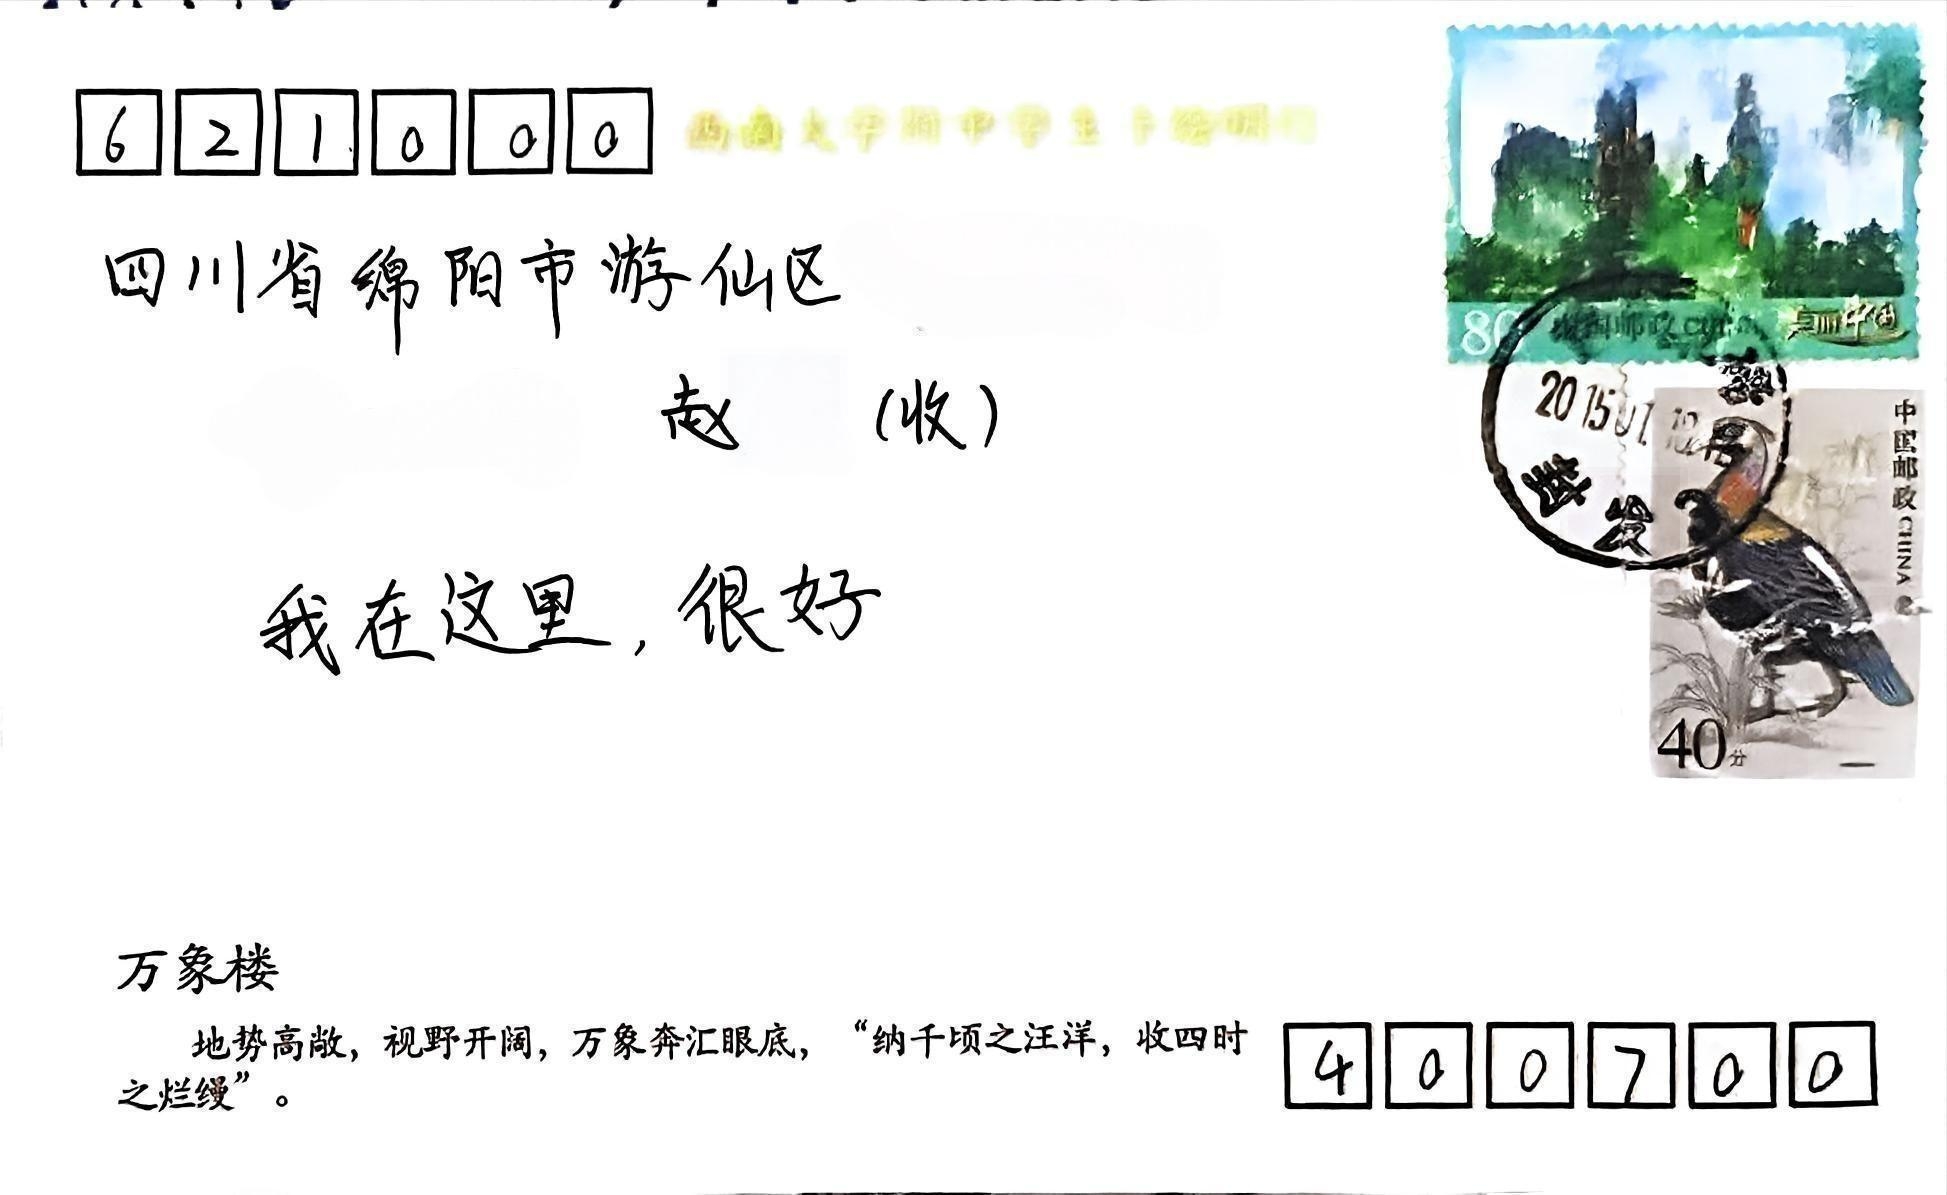 621000
四川省绵阳市游仙区
赵 (收)
我在这里,很好
80
中国邮政 CHINA
2015 01
中国邮政 CHINA
40分
万象楼
地势高敞,视野开阔,万象奔汇眼底,“纳千顷之汪洋,收四时
之烂缦”。
400700